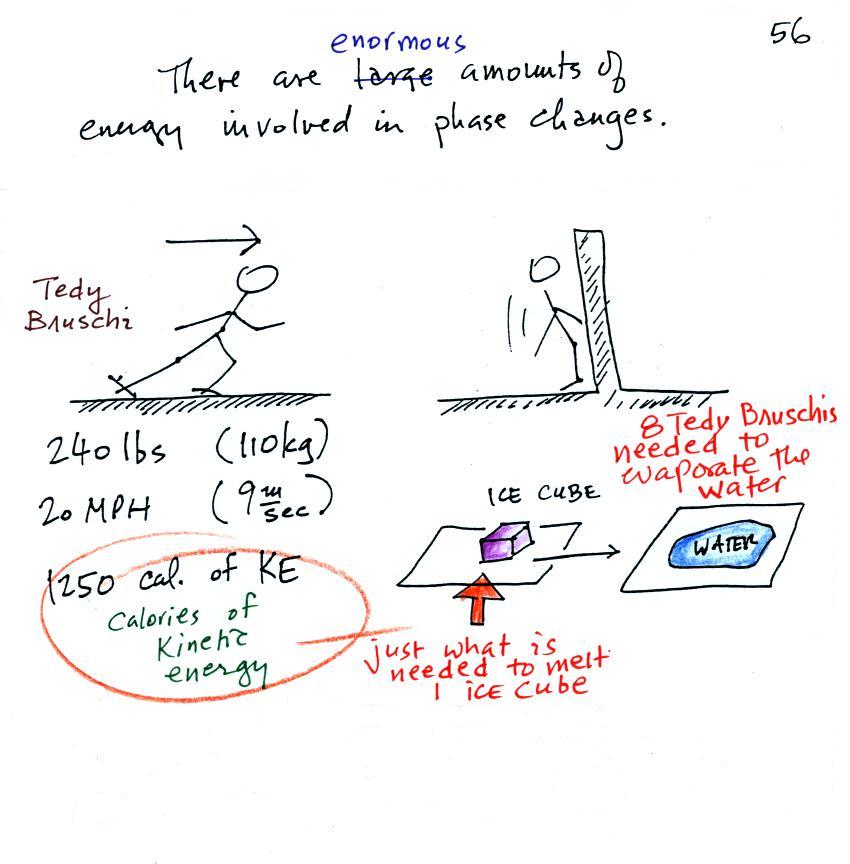 56
enormous
There are large amounts of
energy involved in phase changes.
Tedy
Bruschi
240 lbs (110kg)
20 MPH (9 m/sec)
1250 cal. of KE
Calories of
Kinetic
energy
8 Tedy Bruschis
needed to
evaporate the
water
ICE CUBE
WATER
just what is
needed to melt
1 ice cube